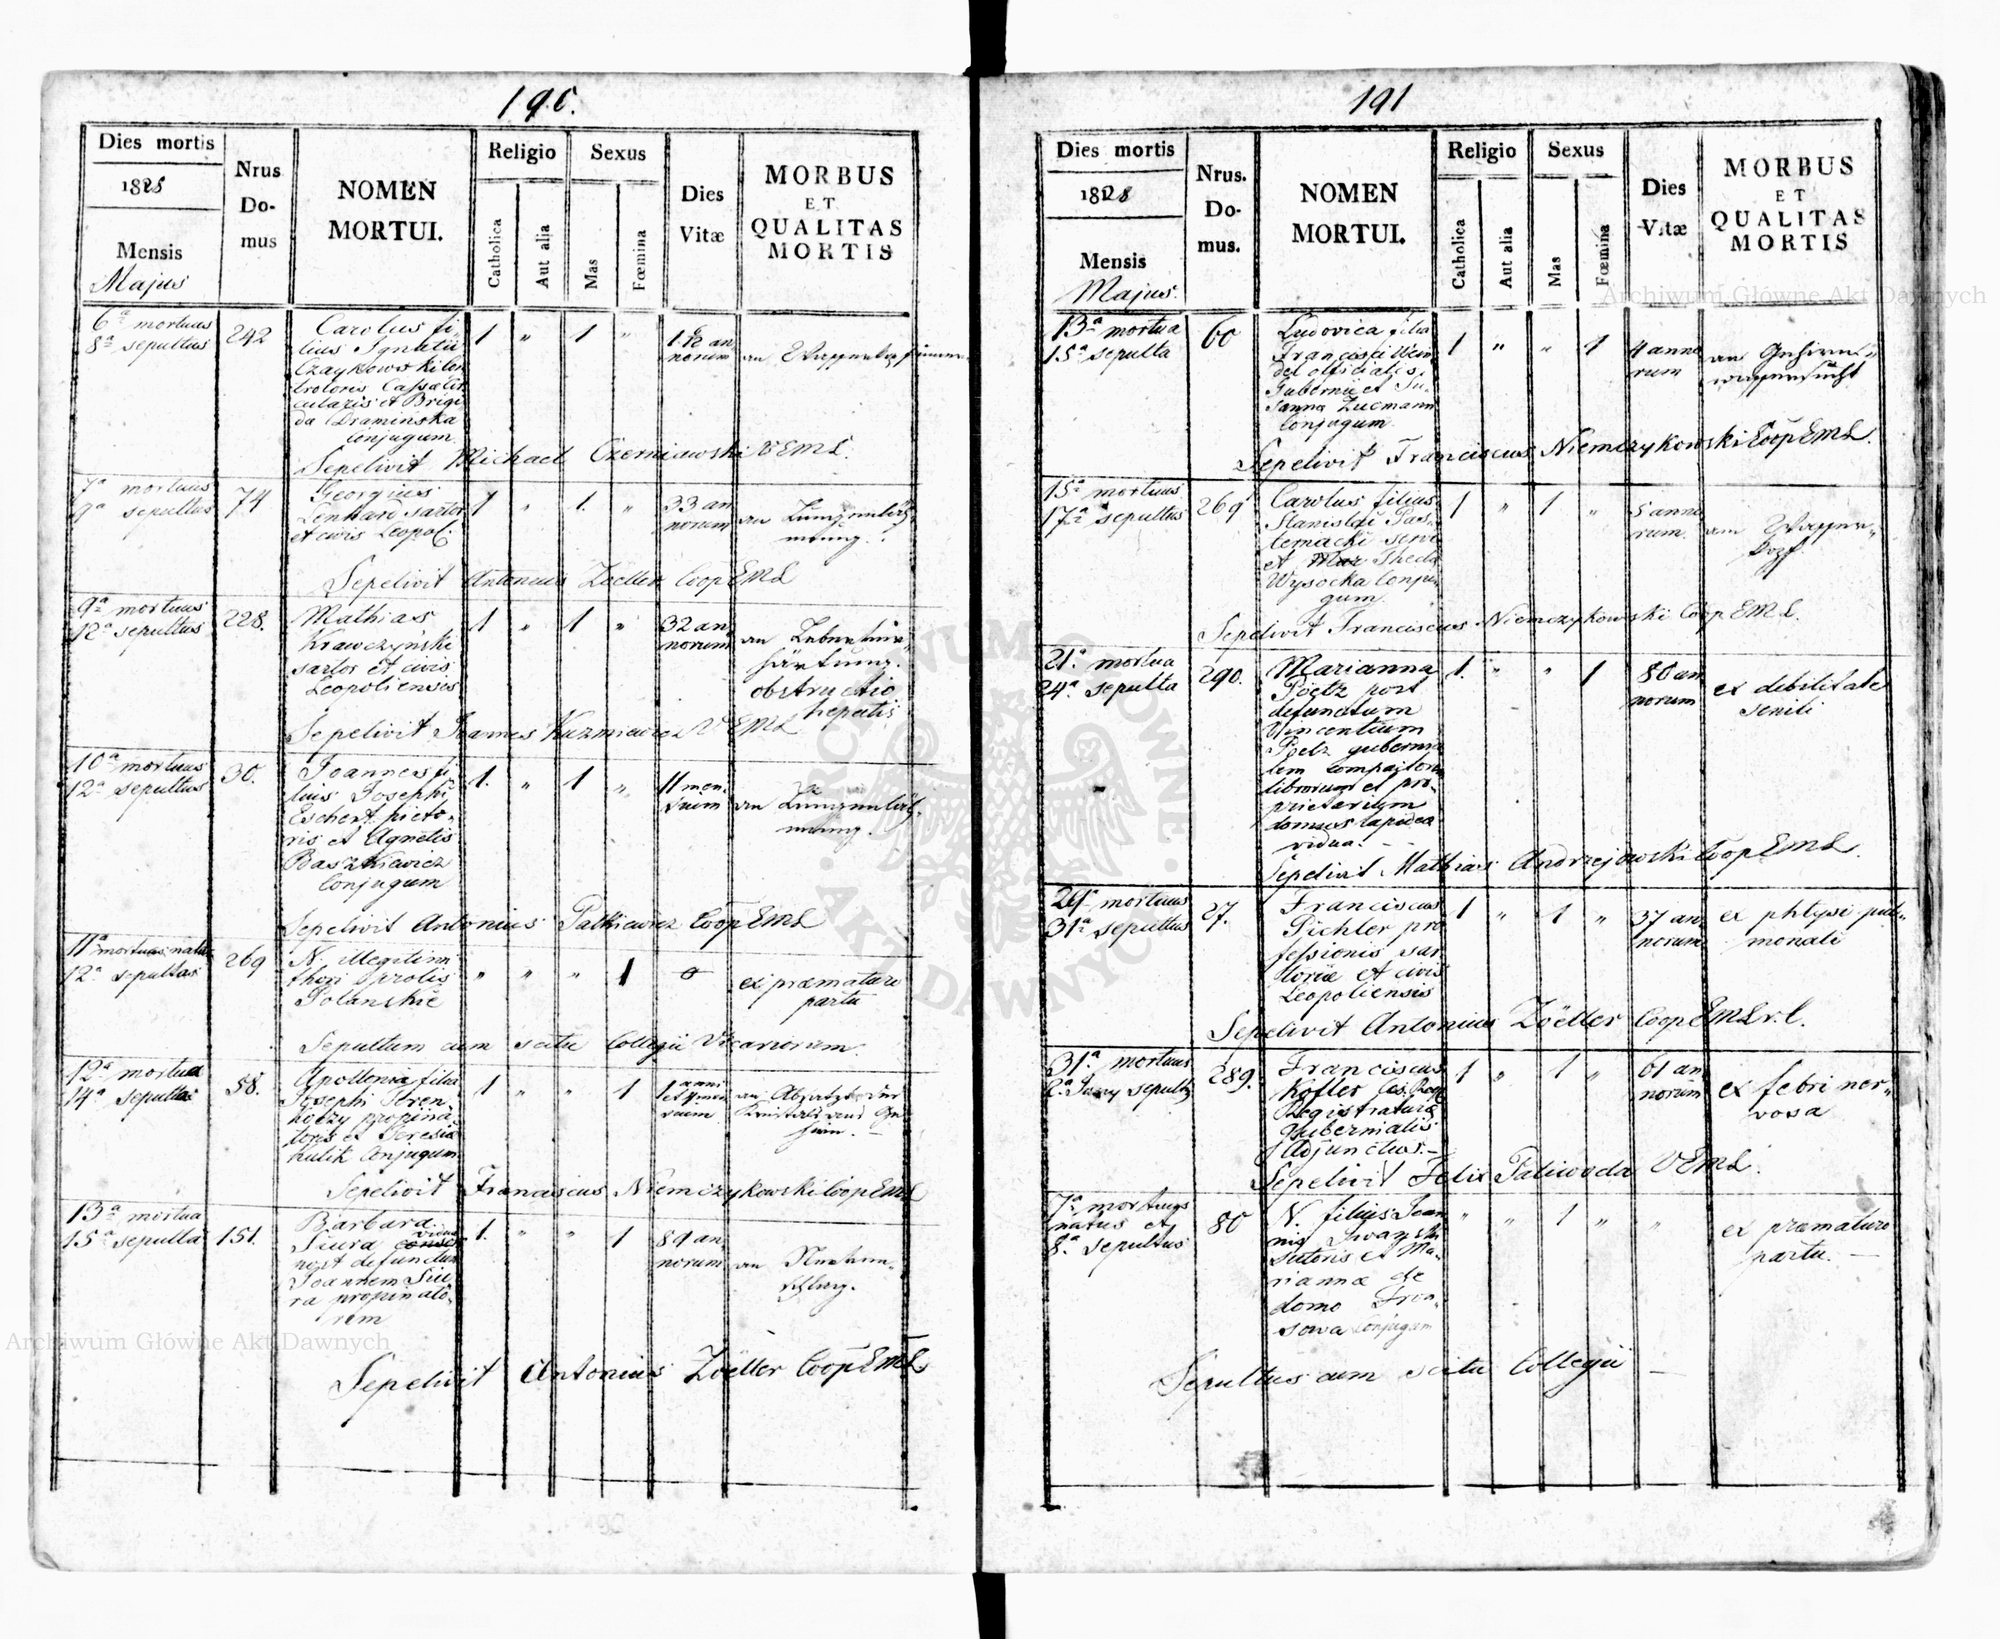 190.
Dies mortis
1828
Mensis
Majus
Nrus
Do-
mus
NOMEN
MORTUI.
Religio
Catholica
Aut alia
Sexus
Mas
Fœmina
Dies
Vitæ
MORBUS
ET
QUALITAS
MORTIS
6ª mortuus
8ª sepultus
242
Carolus fi
lius Ignatii
Czaykowski Con
troloris Cassæ Cir
cularis et Brigi
da Dramińska
Conjugum
1 " 1 "
12 an
norum
an
Sepelivit Michael Czerniawski VEML.
7ª mortuus
9ª sepultus
74
Georgius
Lenhard sartor
et civis Leopol:
1 " 1. "
33 an
norum
an Lungenentzün
dung.
Sepelivit Antonius Zoeller Coop EML
9ª mortuus
12ª sepultus
228.
Mathias
Krawczyński
sartor et civis
Leopoliensis
1 " 1 "
32 an
norum
an Leberver
härtung.
obstructio
hepatis
Sepelivit Joannes Kuzmiewicz V EML
10ª mortuus
12ª sepultus
30.
Joannes fi
lius Josephi
Eschert picto-
ris et Agnetis
Baszkiewicz
Conjugum
1. " 1 "
11 men
sium
an Lungenentzün
dung.
Sepelivit Antonius Patkiewicz Coop EML
11ª mortuus natus
12ª sepultus
269
N. illegitimi
thori prolis
Polanskie
" " " 1
0
ex præmaturo
partu
Sepultum cum scitu Collegii Vicariorum.
12ª mortua
14ª sepulta
58.
Apollonia filia
Josephi Stren
propina
toris et Teresia
Hulik Conjugum
1 " " 1
1 anni
et 4 men
sium
an
Sepelivit Franciscus Niemczykowski Coop EML
13ª mortua
15ª sepulta
151.
Barbara
Siura vidua
post defunctum
Joannem Siu
ra propinato-
rem
1. " " 1
89 an
norum
an
Schlag.
Sepelivit Antonius Zoëller Coop EML
191
Dies mortis
1828
Mensis
Majus.
Nrus.
Do-
mus.
NOMEN
MORTUI.
Religio
Catholica
Aut alia
Sexus
Mas
Fœmina
Dies
Vitæ
MORBUS
ET
QUALITAS
MORTIS
13ª mortua
15ª sepulta
60
Ludovica filia
Francisci Wein
del officialis
Gubernii et Su
sanna Zucmann
Conjugum.
1 " " 1
4 anno
rum
an Gehirn-
wassersucht
Sepelivit Franciscus Niemczykowski Coop EML.
15ª mortuus
17ª sepultus
269
Carolus filius
Stanislai Pas
ternacki servi
et Thecla
Wysocka Conju
gum.
1 " 1 "
5 anno
rum.
am Wasser-
kopf.
Sepelivit Franciscus Niemczykowski Coop EML.
21ª mortua
24ª sepulta
290.
Marianna
Pöetz post
defunctum
Vincentium
Pöetz gubernia
lem compactorem
librorum et pro-
prietarium
domus lapidea
vidua.
1. " " 1
80 an
norum
ex debilitate
senili
Sepelivit Mathias Andrzejowski Coop EML.
29ª mortuus
31ª sepultus
27.
Franciscus
Pichler pro
fessionis sar
toriæ et civis
Leopoliensis
1 " 1 "
37 an
norum
ex phtysi pul-
monali
Sepelivit Antonius Zöeller Coop EML r. l.
31ª mortuus
2ª Juny sepultus
289.
Franciscus
Kofler Cæs. Reg
Registraturæ
Gubernialis
Adjunctus.
1 " 1 "
61 an
norum
ex febri ner-
vosa
Sepelivit Felix Paliwoda VEML.
7ª mortuus
natus et
8ª sepultus
80
N. filius Joan
nis Iwański
sutoris et Ma-
rianna de
domo
sowa Conjugum
" " 1 " "
ex præmaturo
partu.
Sepultus cum scitu Collegii
Archiwum Główne Akt Dawnych
Archiwum Główne Akt Dawnych
ARCHIWUM GŁÓWNE AKT DAWNYCH